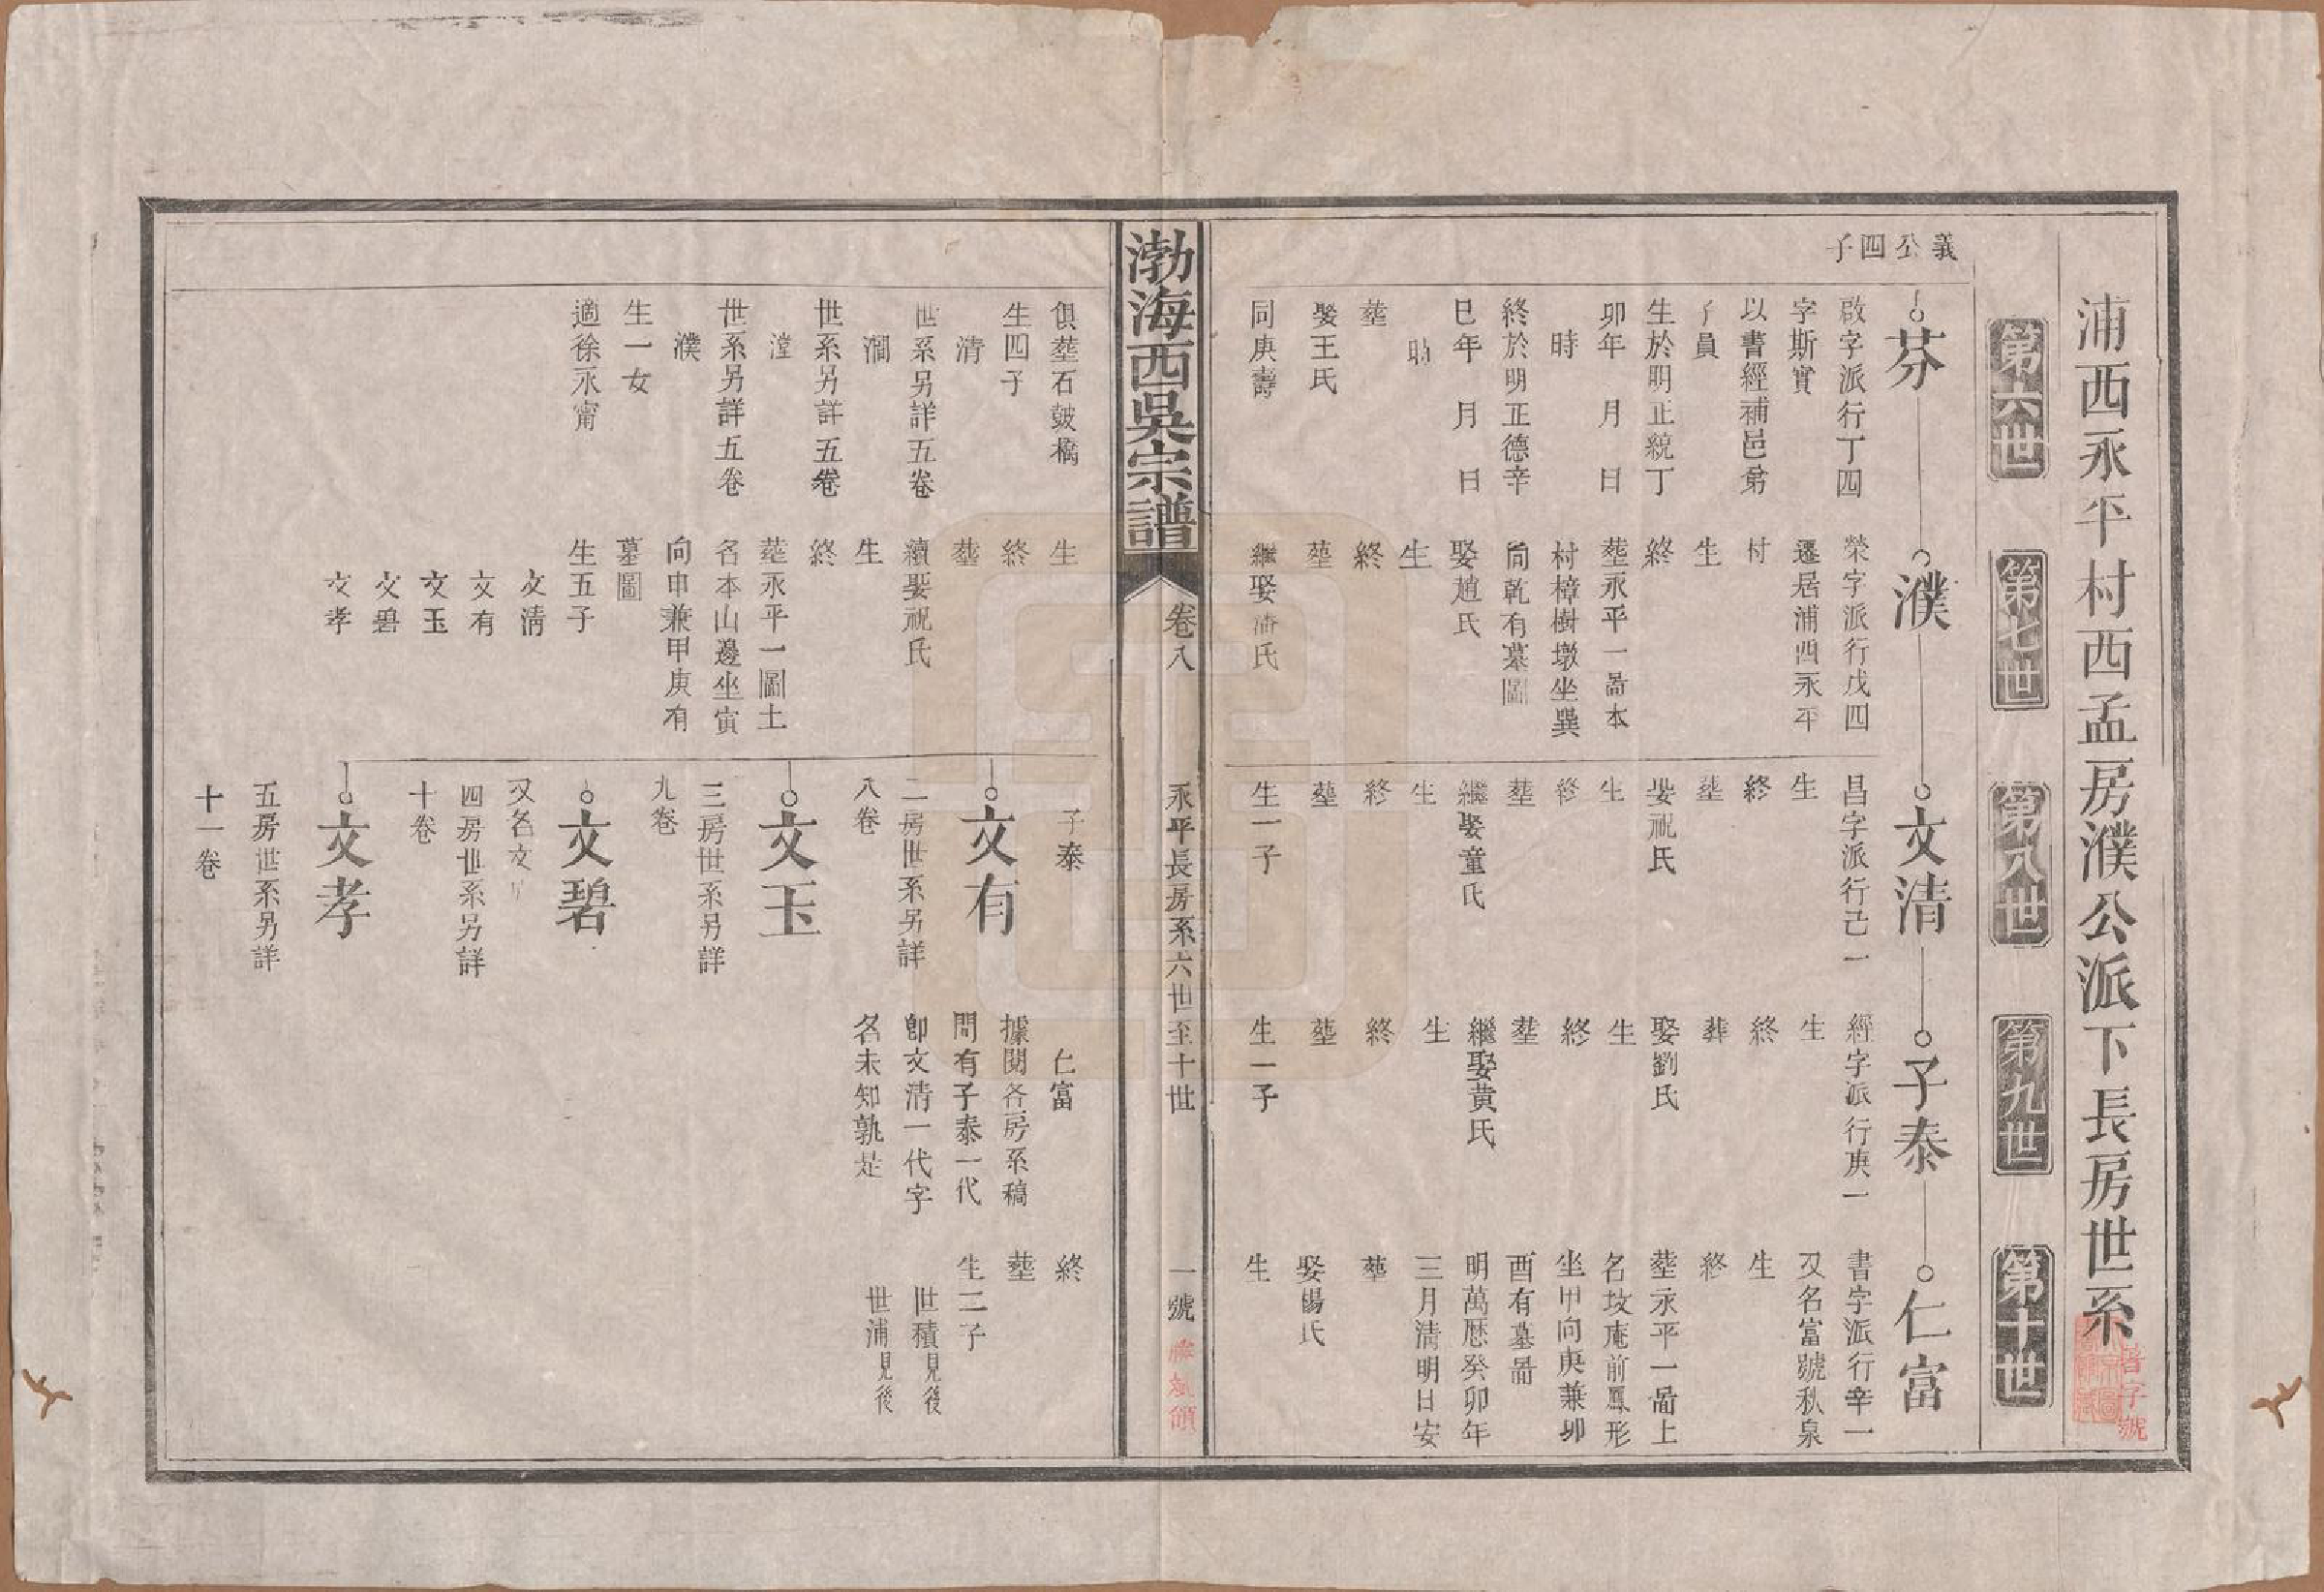 浦西永平村西孟房濮公派下長房世系
第六世
第七世
第八世
第九世
第十世
義公四子
芬
啟字派行丁四
字斯實
以書經補邑弟
子員
生於明正統丁
卯年　月　日
時
終於明正德辛
巳年　月　日
時
塟
娶王氏
同庚壽
俱塟石皷橋
生四子
清
世系另詳五卷
澗
世系另詳五卷
瀅
世系另詳五卷
濮
生一女
適徐永甯
濮
榮字派行戊四
遷居浦西永平
村
生
終
塟永平一啚本
村樟樹墩坐巽
向乾有墓圖
娶趙氏
生
終
塟
繼娶潘氏
生
終
塟
續娶祝氏
生
終
塟永平一圖土
名本山邊坐寅
向申兼甲庚有
墓圖
生五子
文清
文有
文玉
文碧
文孝
文清
昌字派行己一
生
終
塟
娶祝氏
生
終
塟
繼娶童氏
生
終
塟
生一子
子泰
文有
二房世系另詳
八卷
文玉
三房世系另詳
九卷
文碧
又名文
四房世系另詳
十卷
文孝
五房世系另詳
十一卷
子泰
經字派行庚一
生
終
葬
娶劉氏
生
終
塟
繼娶黃氏
生
終
塟
生一子
仁富
據閱各房系稿
間有子泰一代
卽文清一代字
名未知孰是
仁富
書字派行辛一
又名富號秋泉
生
終
塟永平一啚土
名坟庵前鳳形
坐甲向庚兼卯
酉有墓啚
明萬歷癸卯年
三月清明日安
塟
娶楊氏
生
終
塟
生二子
世積見後
世浦見後
渤海西吳宗譜
卷八
永平長房系六世至十世
一號
字號
領